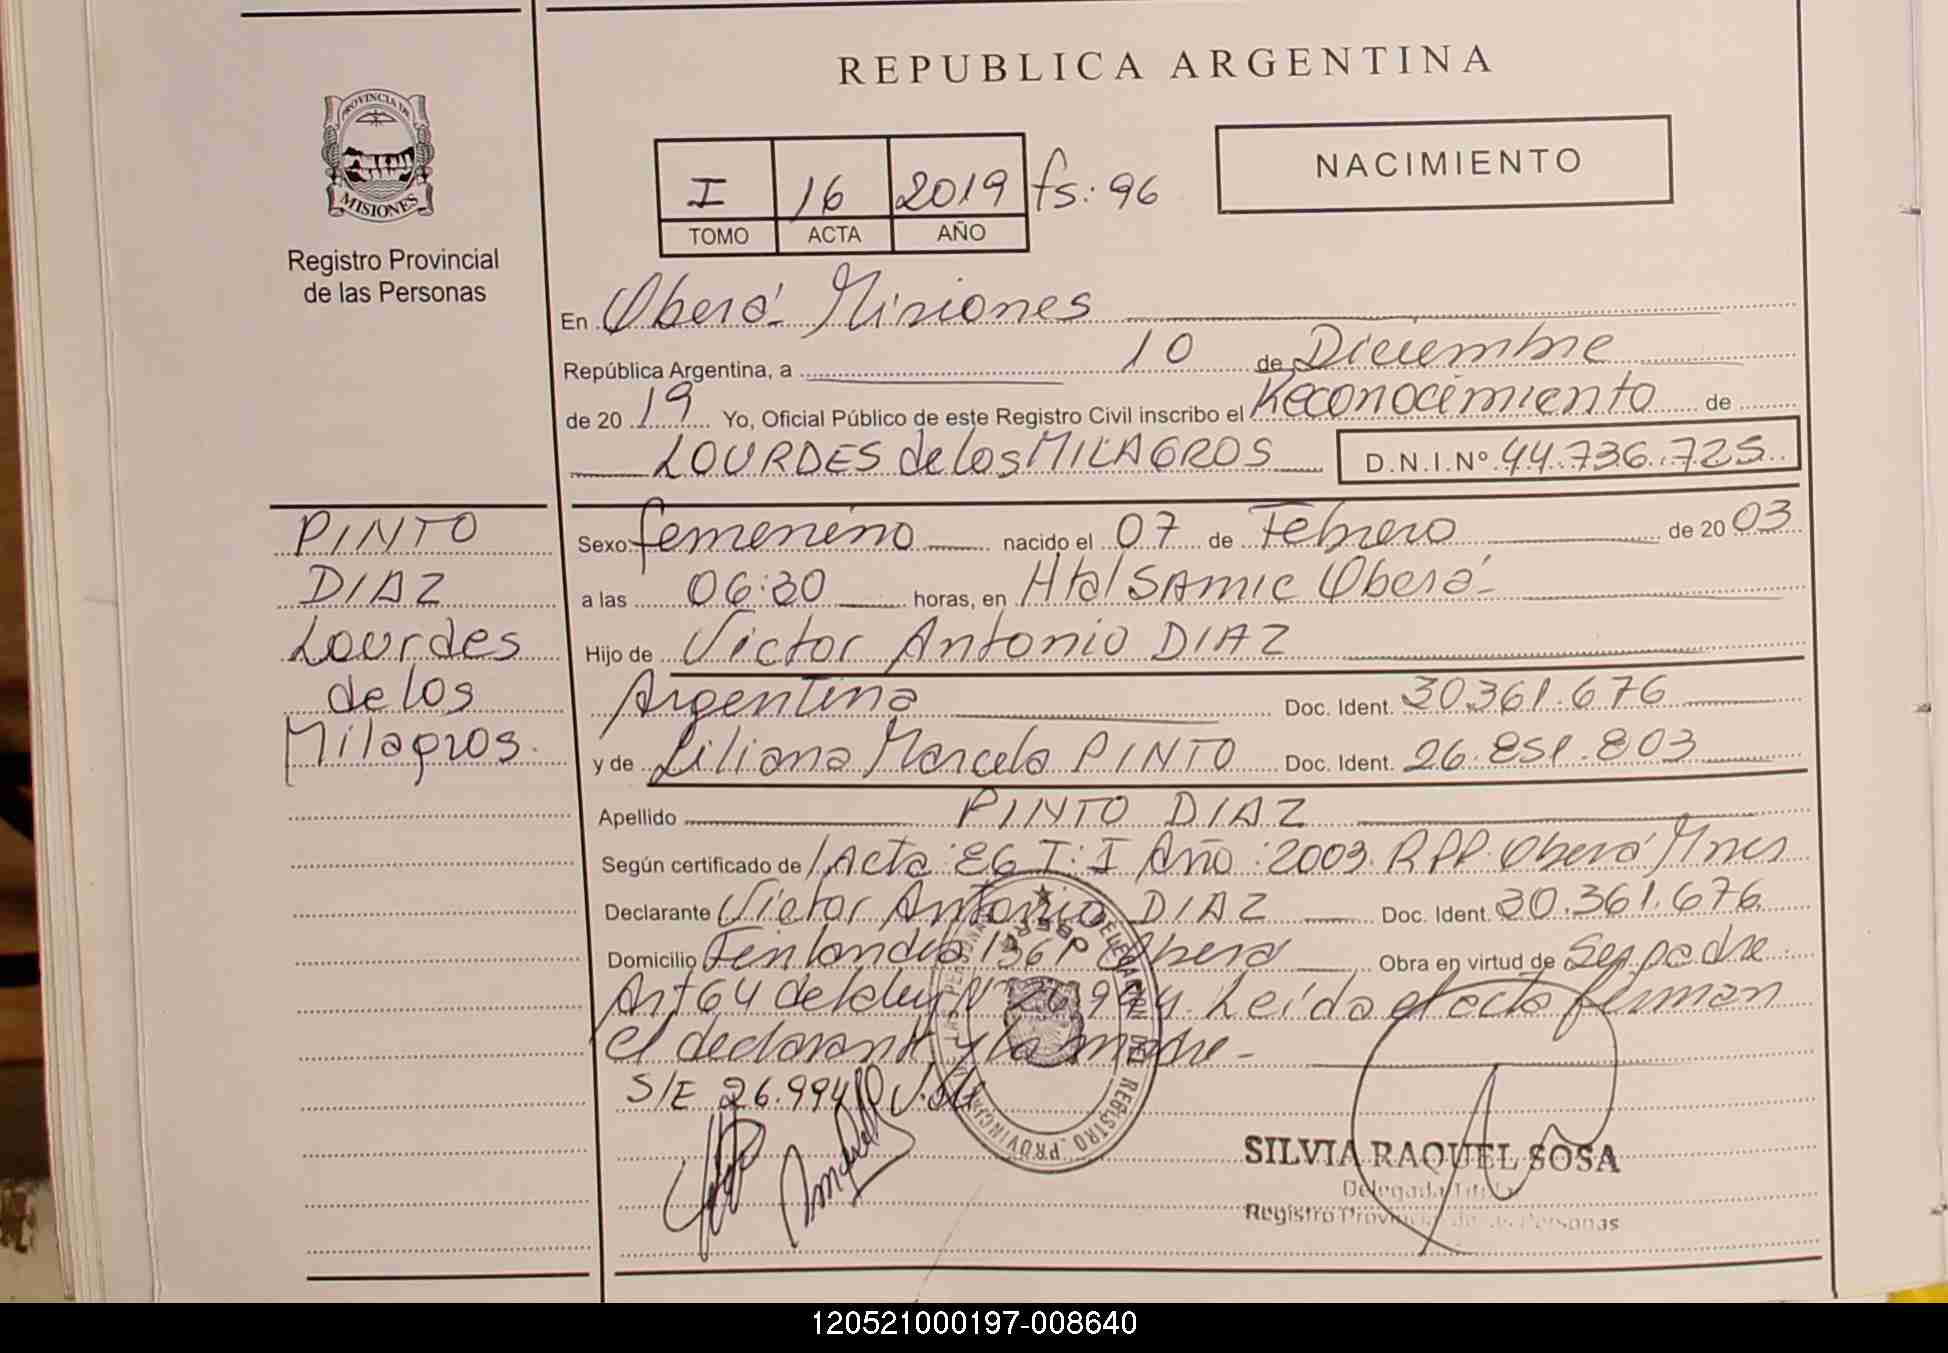 REPUBLICA ARGENTINA
PROVINCIA DE
MISIONES
Registro Provincial
de las Personas
I 16 2019 fs: 96
TOMO ACTA AÑO
NACIMIENTO
En Oberá Misiones
República Argentina, a 10 de Diciembre
de 2019 Yo, Oficial Público de este Registro Civil inscribo el Reconocimiento de
LOURDES de los MILAGROS D.N.I.Nº 44.736.725
PINTO
DIAZ
Lourdes
de los
Milagros.
Sexo femenino nacido el 07 de Febrero de 2003
a las 06:30 horas, en Htal SAMIC Oberá
Hijo de Victor Antonio DIAZ
Argentina Doc. Ident. 30.361.676
y de Liliana Marcela PINTO Doc. Ident. 26.851.803
Apellido PINTO DIAZ
Según certificado de Acta: 86 T: I Año: 2003. RPP. Oberá Mnes
Declarante Victor Antonio DIAZ Doc. Ident. 30.361.676
Domicilio Finlandia 136 Oberá Obra en virtud de Ser padre
Art 64 de la ley Nº 26.994. Leído el acta firman
el declarante y la madre-
S/E 26.994 Vale
DELEGACION DEL REGISTRO PROVINCIAL DE LAS PERSONAS
OBERA
SILVIA RAQUEL SOSA
Delegada Titular
Registro Provincial de las Personas
120521000197-008640